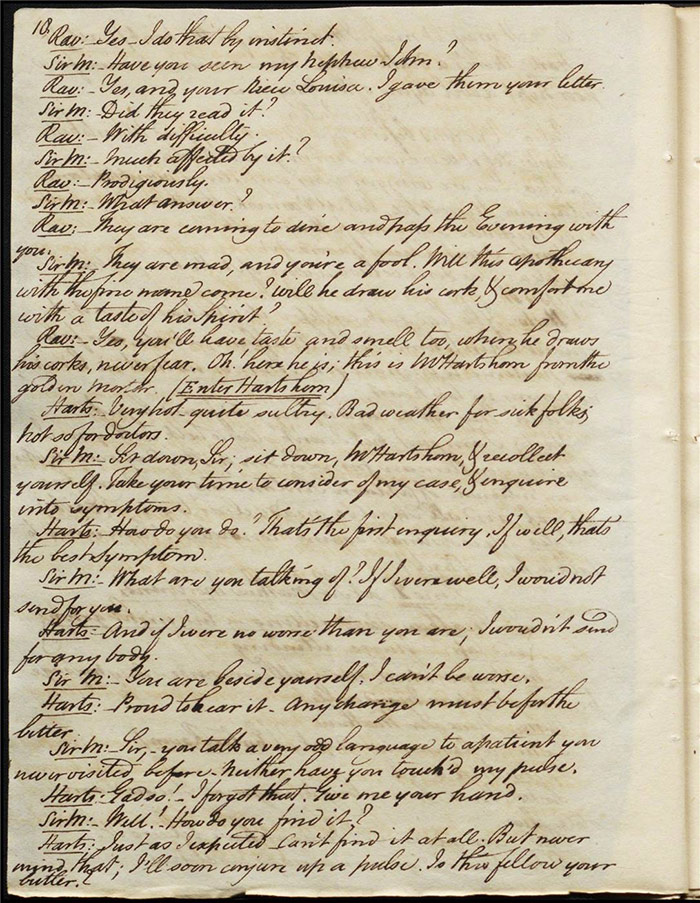 18
Rav:- Yes - I do that by instinct.
Sir M:- Have you seen my Nephew John?
Rav:- Yes, and your Niece Louisa. I gave them your letter.
Sir M:- Did they read it?
Rav:- With difficulty.
Sir M:- Much affected by it?
Rav:- Prodigiously.
Sir M:- What answer?
Rav:- They are coming to dine and pass the Evening with
you.
Sir M:- They are mad, and you're a fool. Will this apothecary
with the fine name come? will he draw his cork, & comfort me
with a taste of his Spirit?
Rav:- Yes, you'll have taste and smell too, when he draws
his corks, never fear. Oh! here he is; this is Mr Hartshorn from the
golden Mortar. (Enter Hartshorn)
Harts:- Very hot - quite sultry. Bad weather for sick folks;
not so for doctors.
Sir M:- Sit down, Sir; sit down, Mr Hartshorn, & recollect
yourself. Take your time to consider of my case, & enquire
into symptoms.
Harts:- How do you do? That's the first enquiry. If well, thats
the best Symptom.
Sir M:- What are you talking of? If I were well, I woud not
send for you.
Harts:- And if I were no worse than you are; I wou'dn't send
for any body.
Sir M:- You are beside yourself. I can't be worse.
Harts:- Proud to hear it - Any change must be for the
better.
Sir M:- Sir, - you talk a very odd language to a patient you
never visited before. Neither have you touch'd my pulse.
Harts:- Gadso! - I forgot that. Give me your hand.
Sir M:- Will! How do you find it?
Harts:- Just as I expected - Can't find it at all. But never
mind that; I'll soon conjure up a pulse. Is this fellow your
butler?